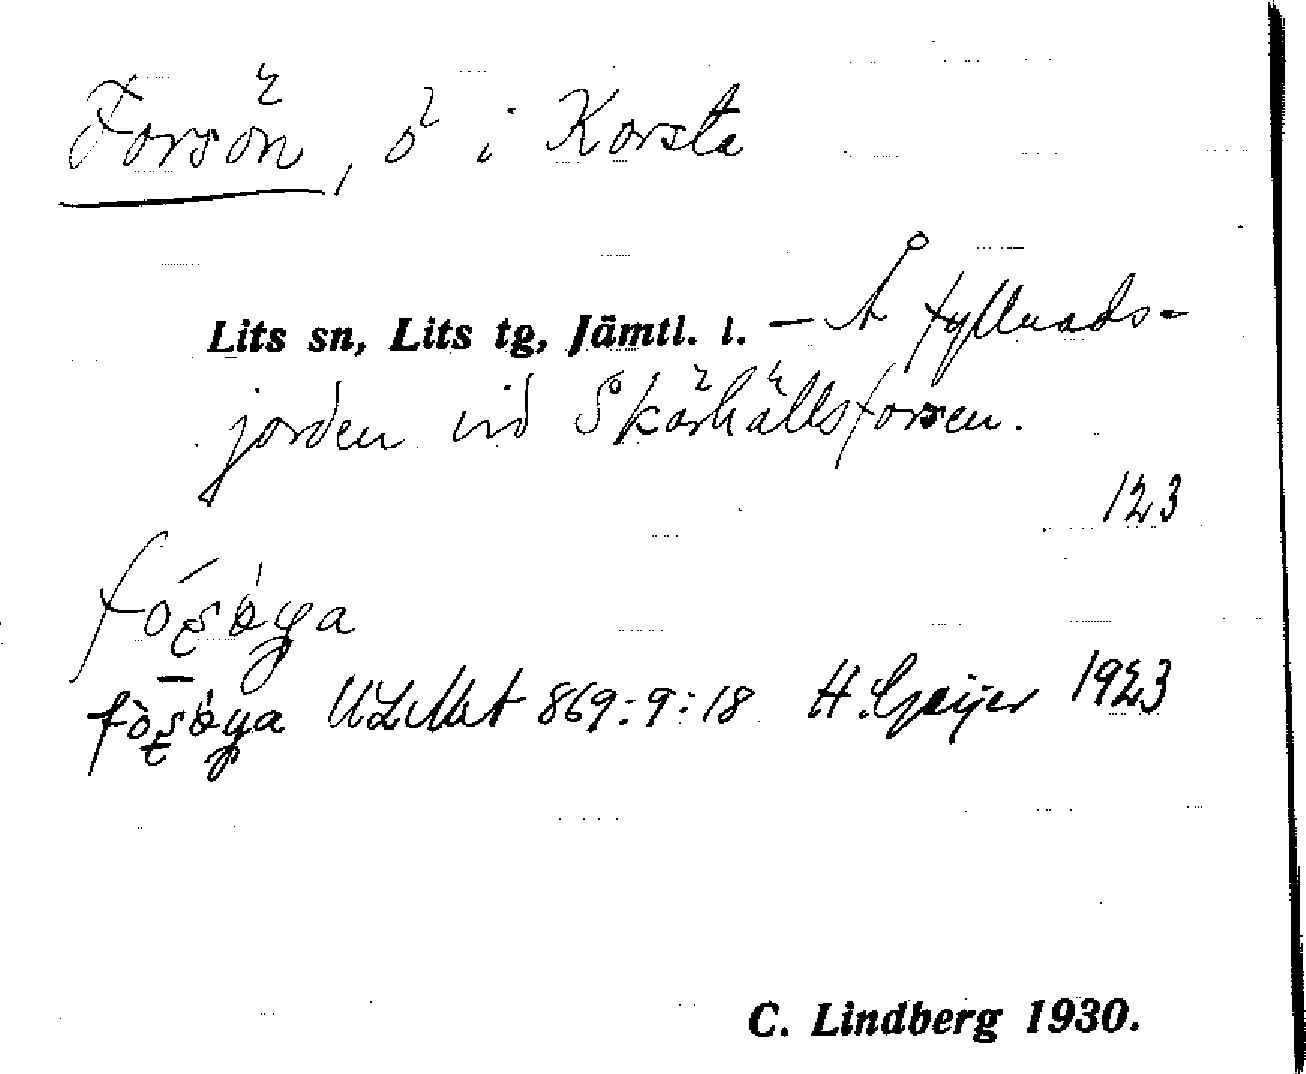 Forsön, ö i Korsta
Lits sn, Lits tg, Jämtl. l. - Å fyllnads-
jorden vid Skärhällsforsen.
123
1923
869:9:18 H. Geijer
C. Lindberg 1930.